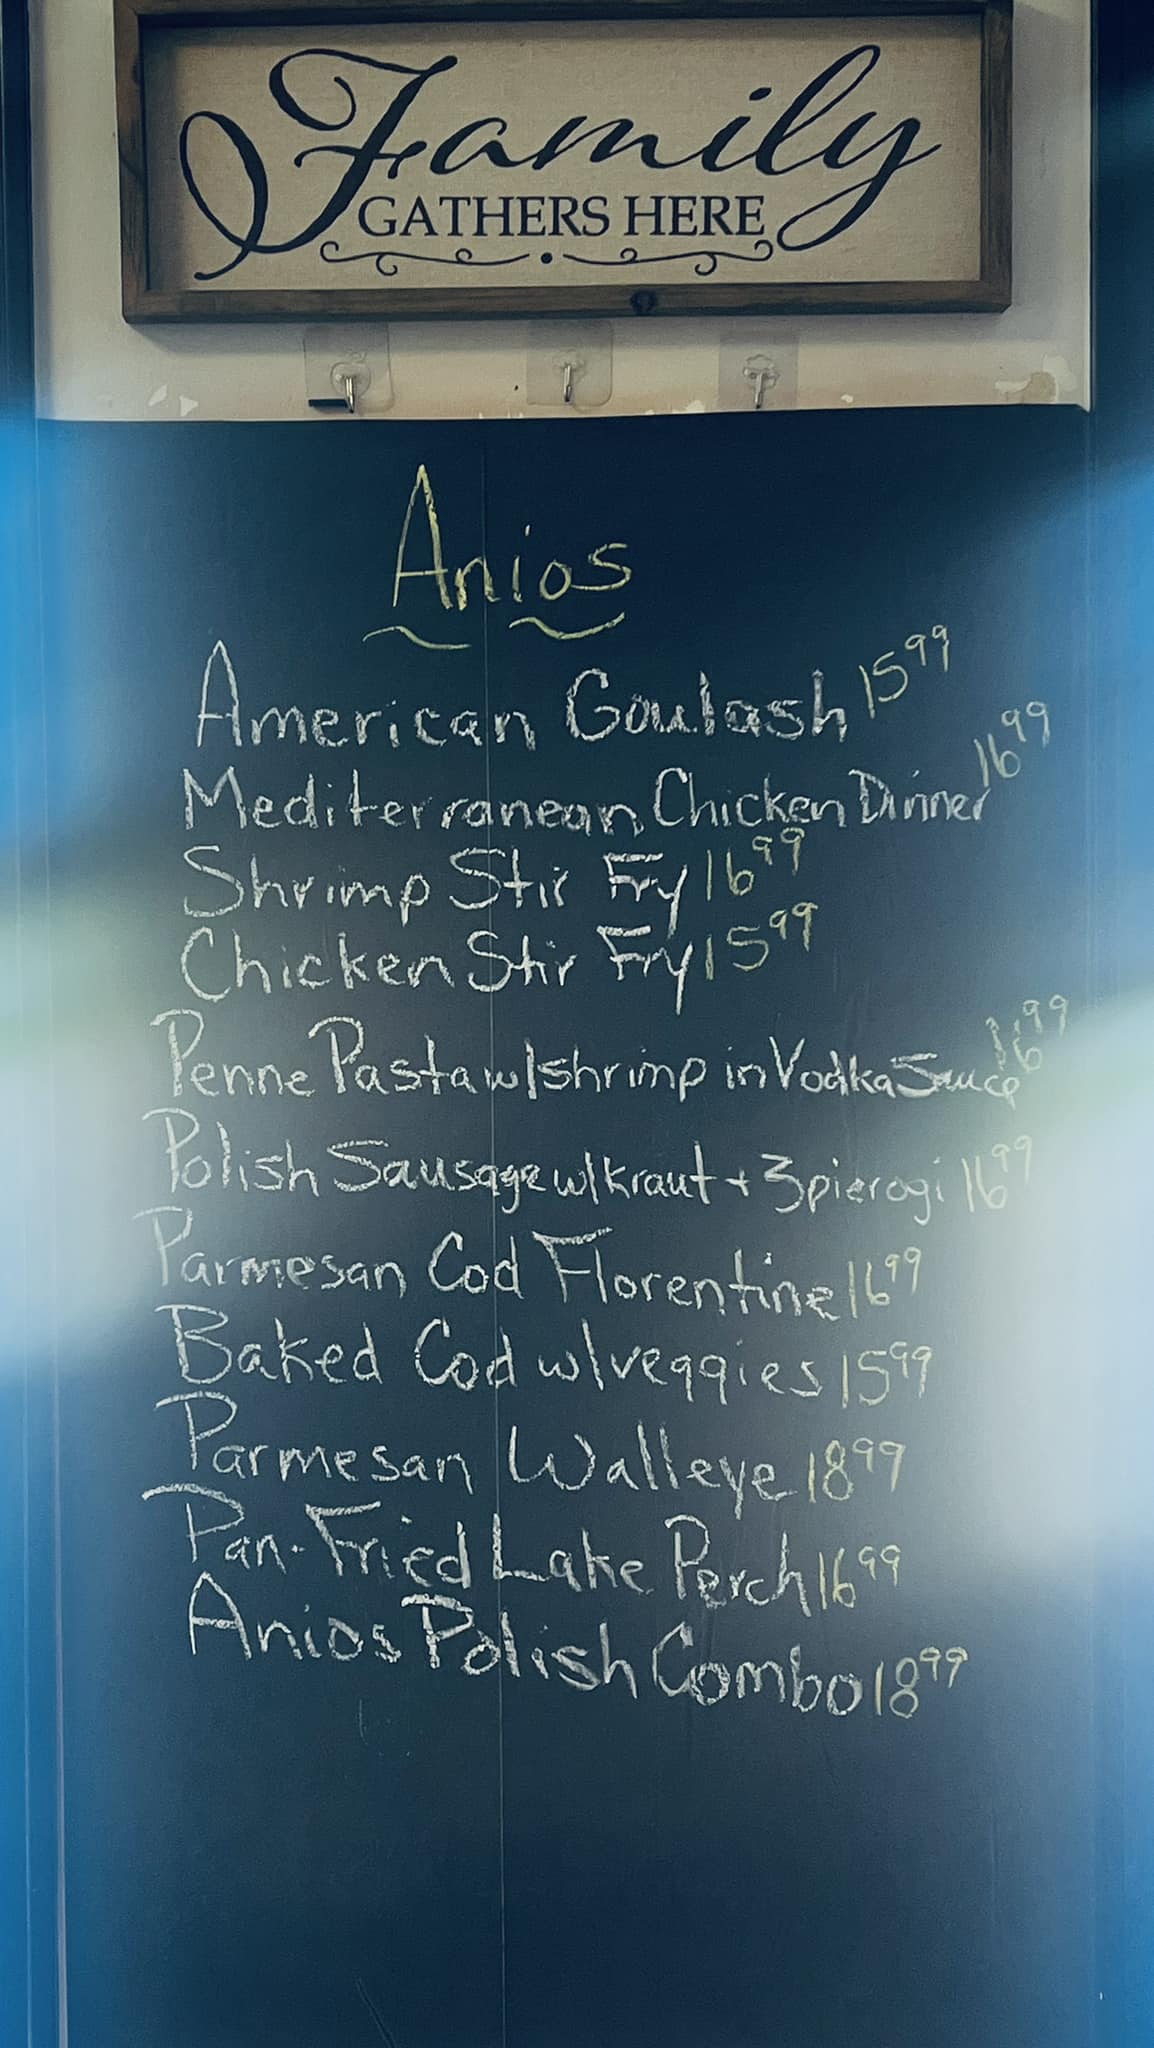 Family
GATHERS HERE
Anios
American Goulash 15 99
Mediterranean Chicken Dinner 16 99
Shrimp Stir Fry 16 99
Chicken Stir Fry 15 99
Penne Pasta w/shrimp in Vodka Sauce 16 99
Polish Sausage w/kraut + 3 pierogi 16 99
Parmesan Cod Florentine 16 99
Baked Cod w/veggies 15 99
Parmesan Walleye 18 99
Pan-Fried Lake Perch 16 99
Anios Polish Combo 18 99